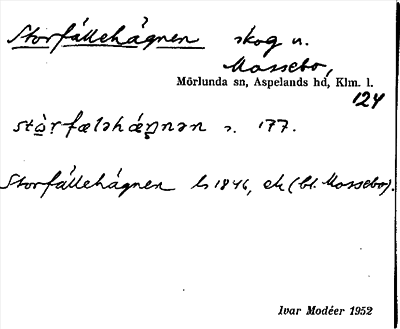 Storfällehägnen skog n.
Mossebo,
Mörlunda sn, Aspelands hd, Klm. l.
124
s. 177.
Storfällehägnen ls 1846, ek (bl. Mossebo).
Ivar Modéer 1952